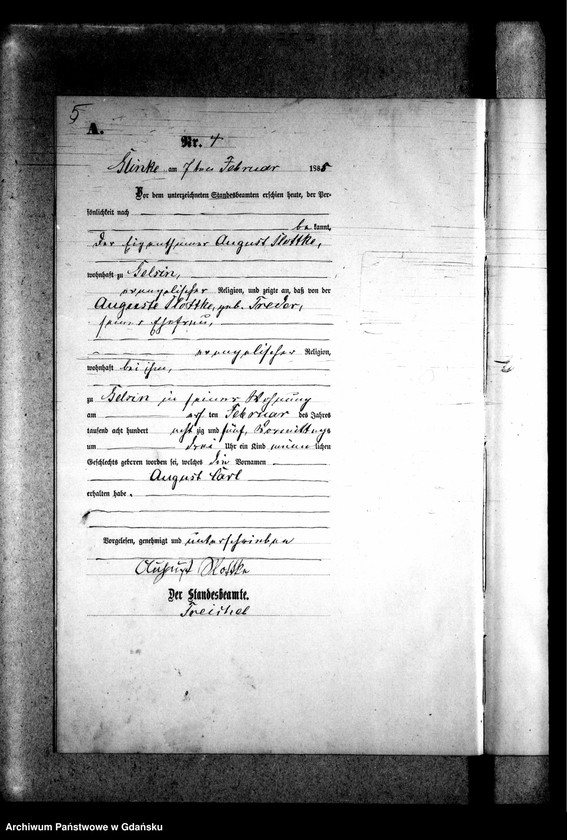 5
A.
Nr. 4
Glinke am 7ten Februar 1885
Vor dem unterzeichneten Standesbeamten erschien heute, der Per-
sönlichkeit nach
bekannt,
der Eigenthümer August
wohnhaft zu
evangelischer Religion, und zeigte an, daß von der
Auguste geb. Treder,
seiner Ehefrau,
evangelischer Religion,
wohnhaft bei ihm,
zu in seiner Wohnung
am ten Februar des Jahres
tausend acht hundert achtzig und fünf, Vormittags
um drei Uhr ein Kind männlichen
Geschlechts geboren worden sei, welches die Vornamen
August Carl
erhalten habe.
Vorgelesen, genehmigt und unterschrieben
August
Der Standesbeamte.
Treichel
Archiwum Państwowe w Gdańsku